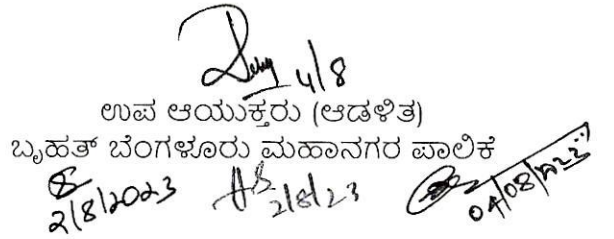 4/8
ಉಪ ಆಯುಕ್ತರು (ಆಡಳಿತ)
ಬೃಹತ್ ಬೆಂಗಳೂರು ಮಹಾನಗರ ಪಾಲಿಕೆ
2/8/2023 2/8/23 04/08/2023